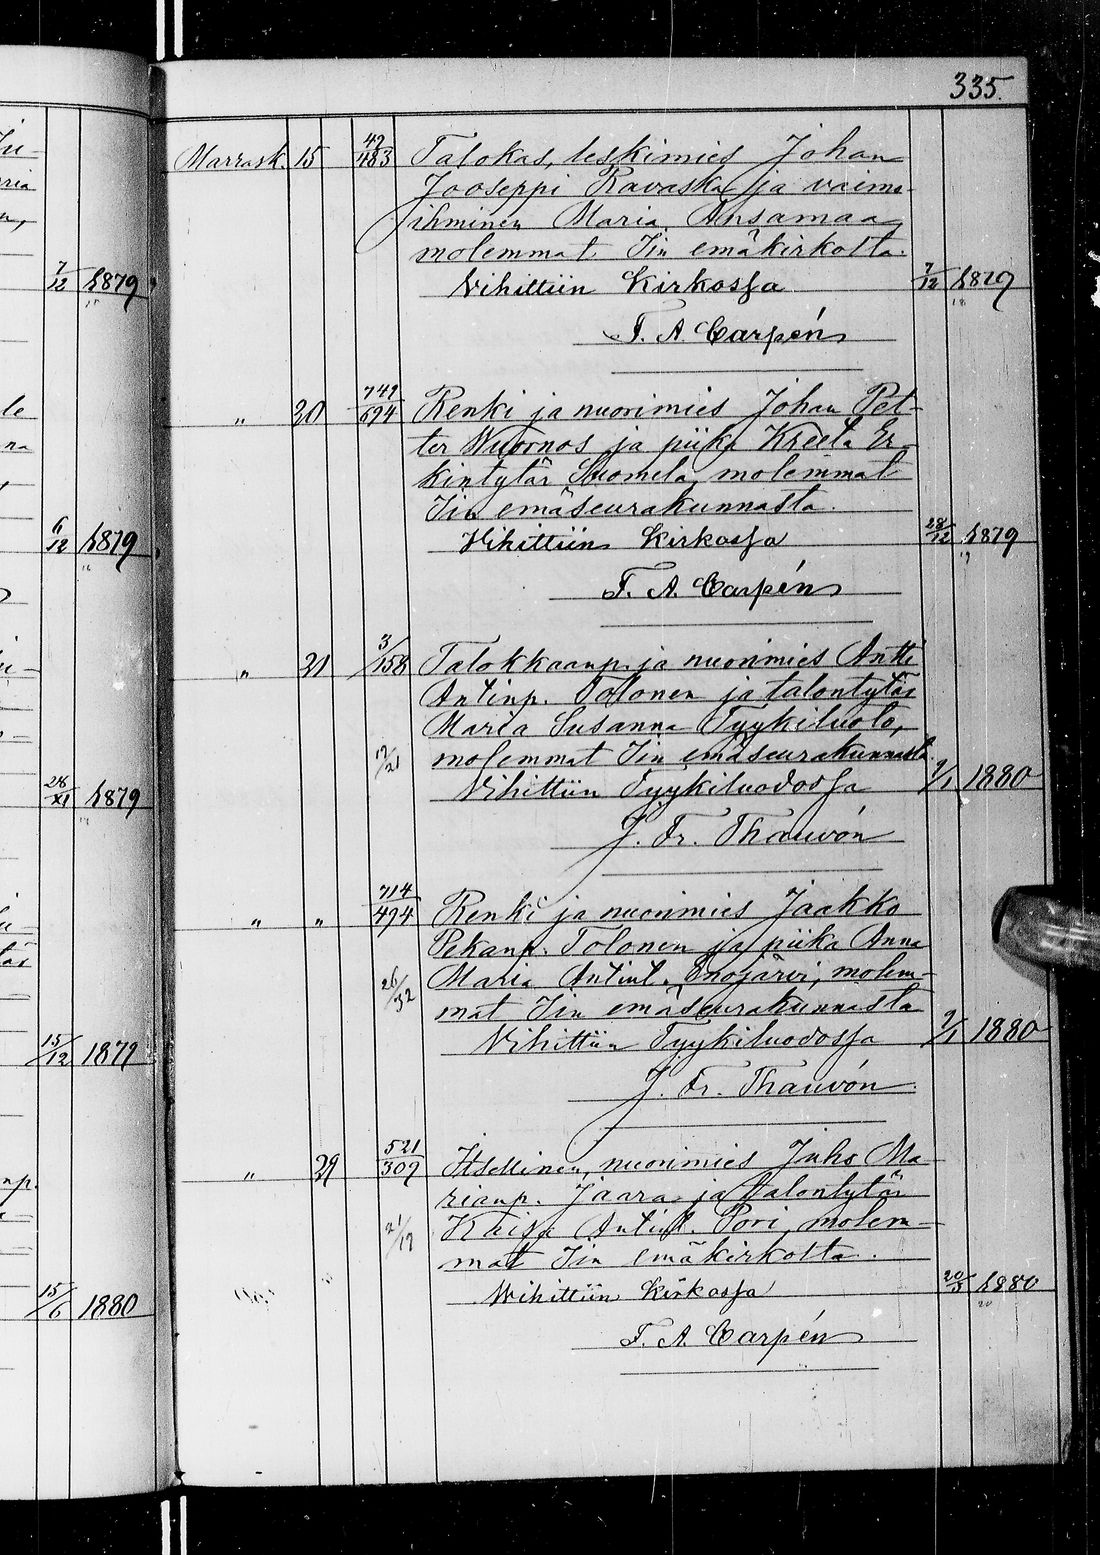 335.
Marrask. 15 49/483 Talokas, leskimies Johan
Jooseppi Ravaska ja vaimo-
ihminen Maria Ansamaa,
molemmat Iin emäkirkolta.
Vihittiin Kirkossa 7/12 1879
F. A. Carpén
" 20 742/694 Renki ja nuorimies Johan Pet-
ter Wuornos ja piika Kreeta Er-
kintytär Suomela, molemmat
Iin emäseurakunnasta.
Vihittiin Kirkossa 28/12 1879
F. A. Carpén
" 21 3/158 Talokkaanp. ja nuorimies Antti
Antinp. Tolonen ja talontytär
Maria Susanna Tyykiluoto,
molemmat Iin emäseurakunnasta.
Vihittiin Tyykiluodossa 9/1 1880
J. Fr. Thauvón
" " 714/494 Renki ja nuorimies Jaakko
Pekanp. Tolonen ja piika Anna
26/32 Maria Antint. Onojärvi, molem-
mat Iin emäseurakunnasta
Vihittiin Tyykiluodossa 9/1 1880
J. Fr. Thauvón
" 29 521/309 Itsellinen, nuorimies Juho Ma-
rianp. Jaara ja talontytär
Kaisa Antint. Pori, molem-
mat Iin emäkirkolta.
Vihittiin Kirkossa 20/3 1880
F. A. Carpén
7/12 1879
6/12 1879
28/XI 1879
15/12 1879
15/6 1880